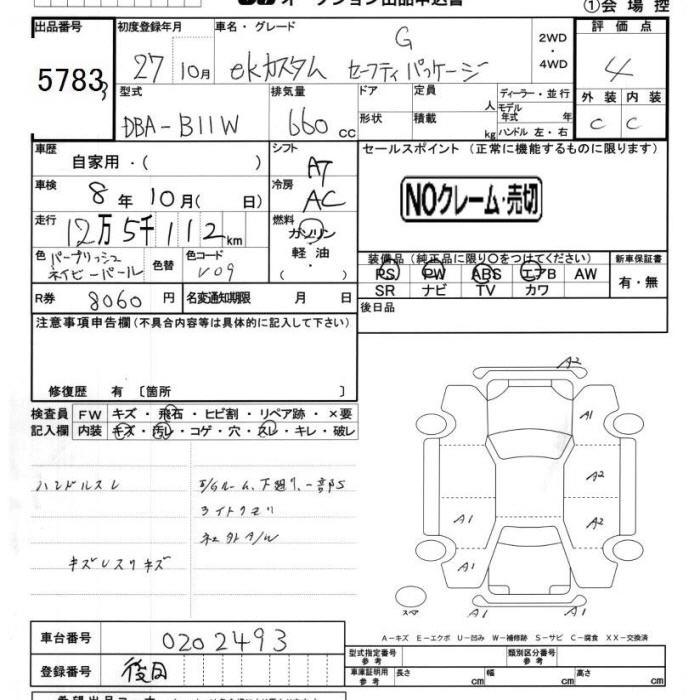 オークション出品申込書
①会場控
出品番号
初度登録年月
車名・グレード
評価点
5783
27
10月
ekカスタム G セーフティパッケージ
2WD
・
4WD
4
型式
排気量
ドア
定員
人
ディーラー・並行
モデル
年式 年
外装
内装
DBA-B11W
660 cc
形状
積載
kg
ハンドル 左・右
C
C
車歴
自家用・( )
シフト
AT
セールスポイント (正常に機能するものに限ります)
車検
8年10月( 日)
冷房
AC
NOクレーム・売切
走行
12万5千112km
燃料
ガソリン
軽油
・( )
色
パープリッシュ
ネイビーパール
色替
色コード
V09
装備品(純正品に限り○をつけてください)
新車保証書
PS PW ABS エアB AW
有・無
SR ナビ TV カワ
R券
8060円
名変通知期限 月 日
後日品
注意事項申告欄(不具合内容等は具体的に記入して下さい)
修復歴 有〔箇所 〕
検査員
記入欄
FW キズ・飛石・ヒビ割・リペア跡・×要
内装 キズ・汚レ・コゲ・穴・スレ・キレ・破レ
ハンドルスレ
E/Gルーム、下廻り、一部S
ライトクモリ
社外A/W
キズレスリキズ
A2
A1
A2
A2
A1
A1
A1
A1
スペア
A-キズ E-エクボ U-凹み W-補修跡 S-サビ C-腐食 XX-交換済
車台番号
0202493
登録番号
後日
型式指定番号
参考
類別区分番号
参考
車庫証明用
参考
長さ cm
幅 cm
高さ cm